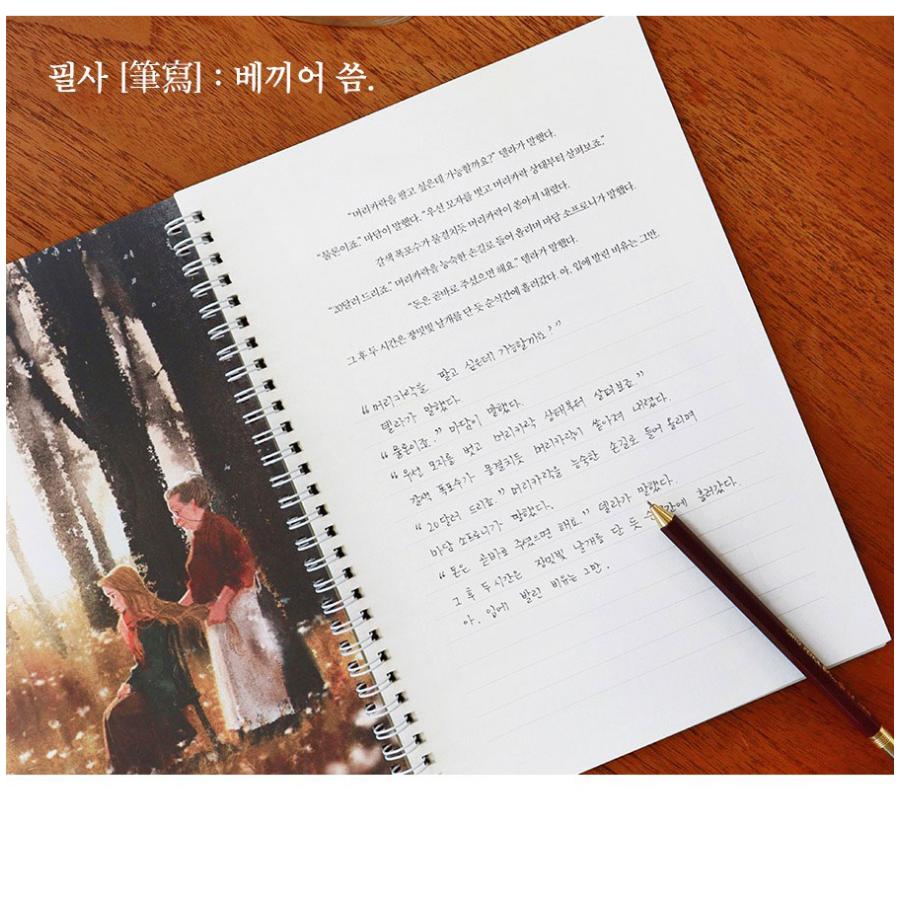 필사 [筆寫] : 베끼어 씀.
“머리카락을 팔고 싶은데 가능할까요?” 델라가 말했다.
“물론이죠.” 마담이 말했다. “우선 모자를 벗고 머리카락 상태부터 살펴보죠.”
갈색 폭포수가 물결치듯 머리카락이 쏟아져 내렸다.
“20달러 드리죠.” 머리카락을 능숙한 손길로 들어 올리며 마담 소프로니가 말했다.
“돈은 곧바로 주셨으면 해요.” 델라가 말했다.
그 후 두 시간은 장밋빛 날개를 단 듯 순식간에 흘러갔다. 아, 입에 발린 비유는 그만.
“머리카락을 팔고 싶은데 가능할까요?”
델라가 말했다.
“물론이죠.” 마담이 말했다.
“우선 모자를 벗고 머리카락 상태부터 살펴보죠”
갈색 폭포수가 물결치듯 머리카락이 쏟아져 내렸다.
“20달러 드리죠.” 머리카락을 능숙한 손길로 들어 올리며
마담 소프로니가 말했다.
“돈은 곧바로 주셨으면 해요.” 델라가 말했다.
그 후 두 시간은 장밋빛 날개를 단 듯 흘러갔다.
아, 입에 발린 비유는 그만.